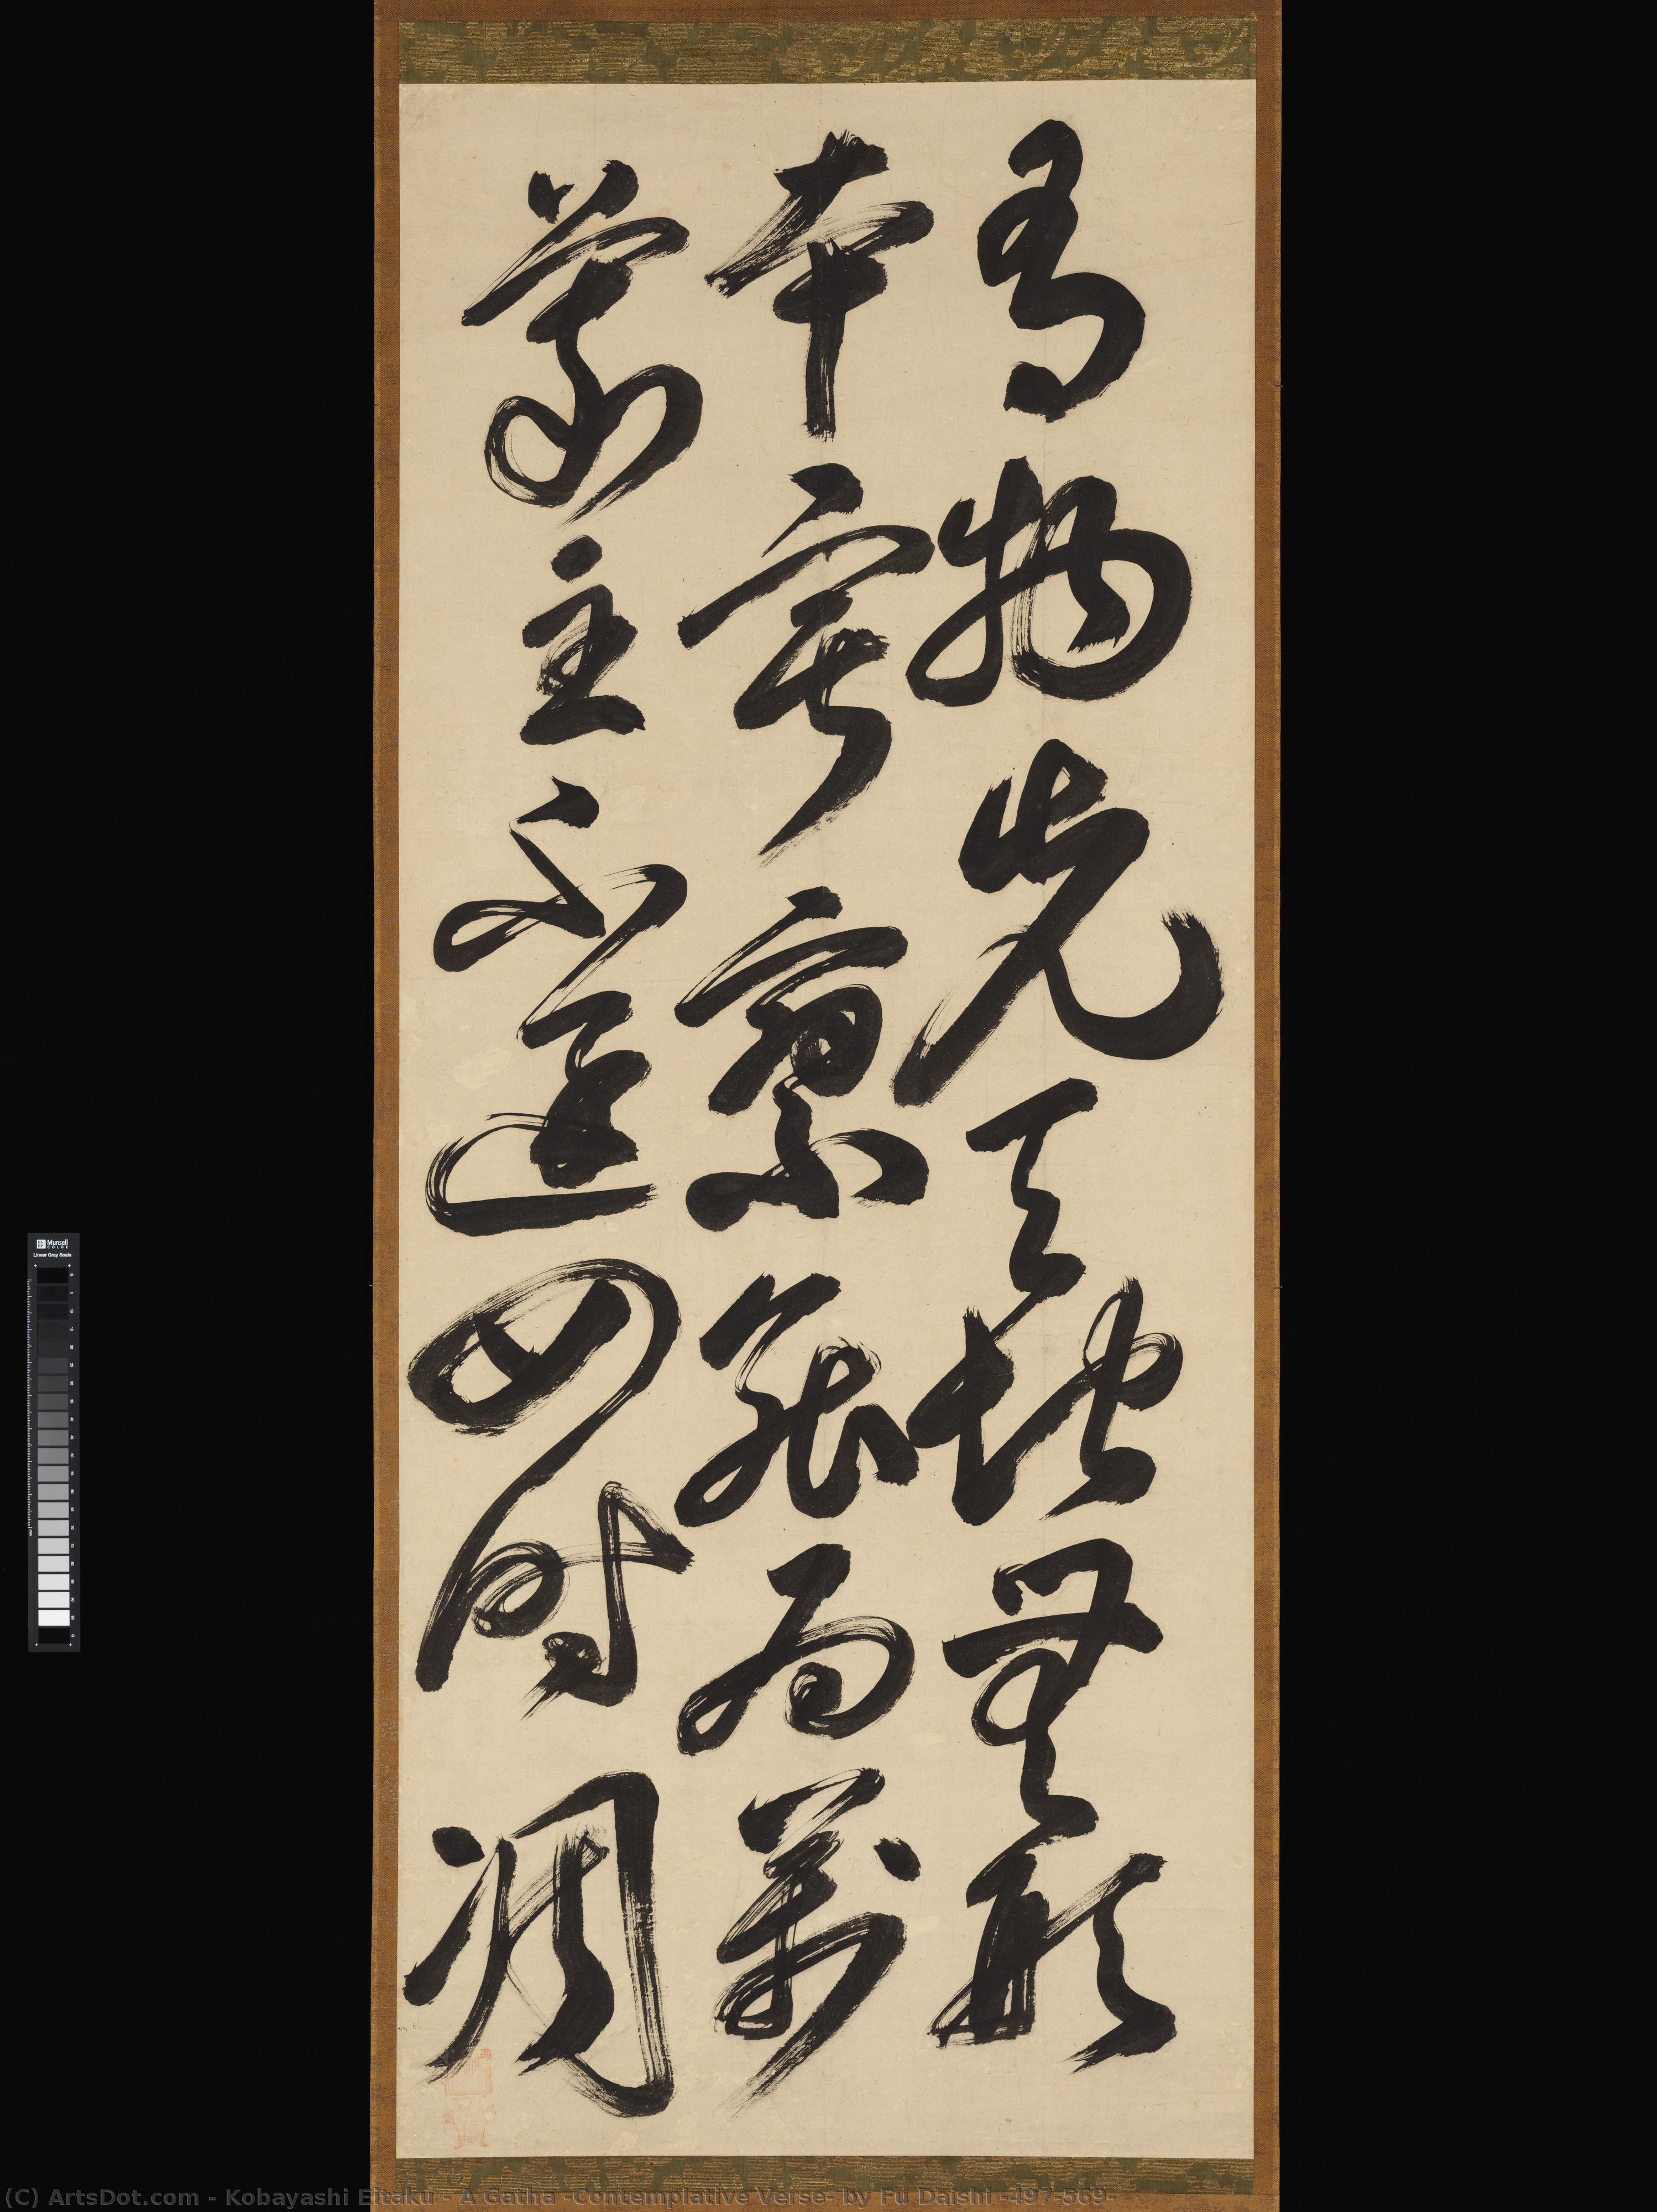 有物先天地無形
本寂寥能為萬
象主不逐四時凋
(C) ArtsDot.com - Kobayashi Eitaku - A Gatha -Contemplative Verse- by Fu Daishi -497-569-
Munsell
COLOR
Linear Gray Scale